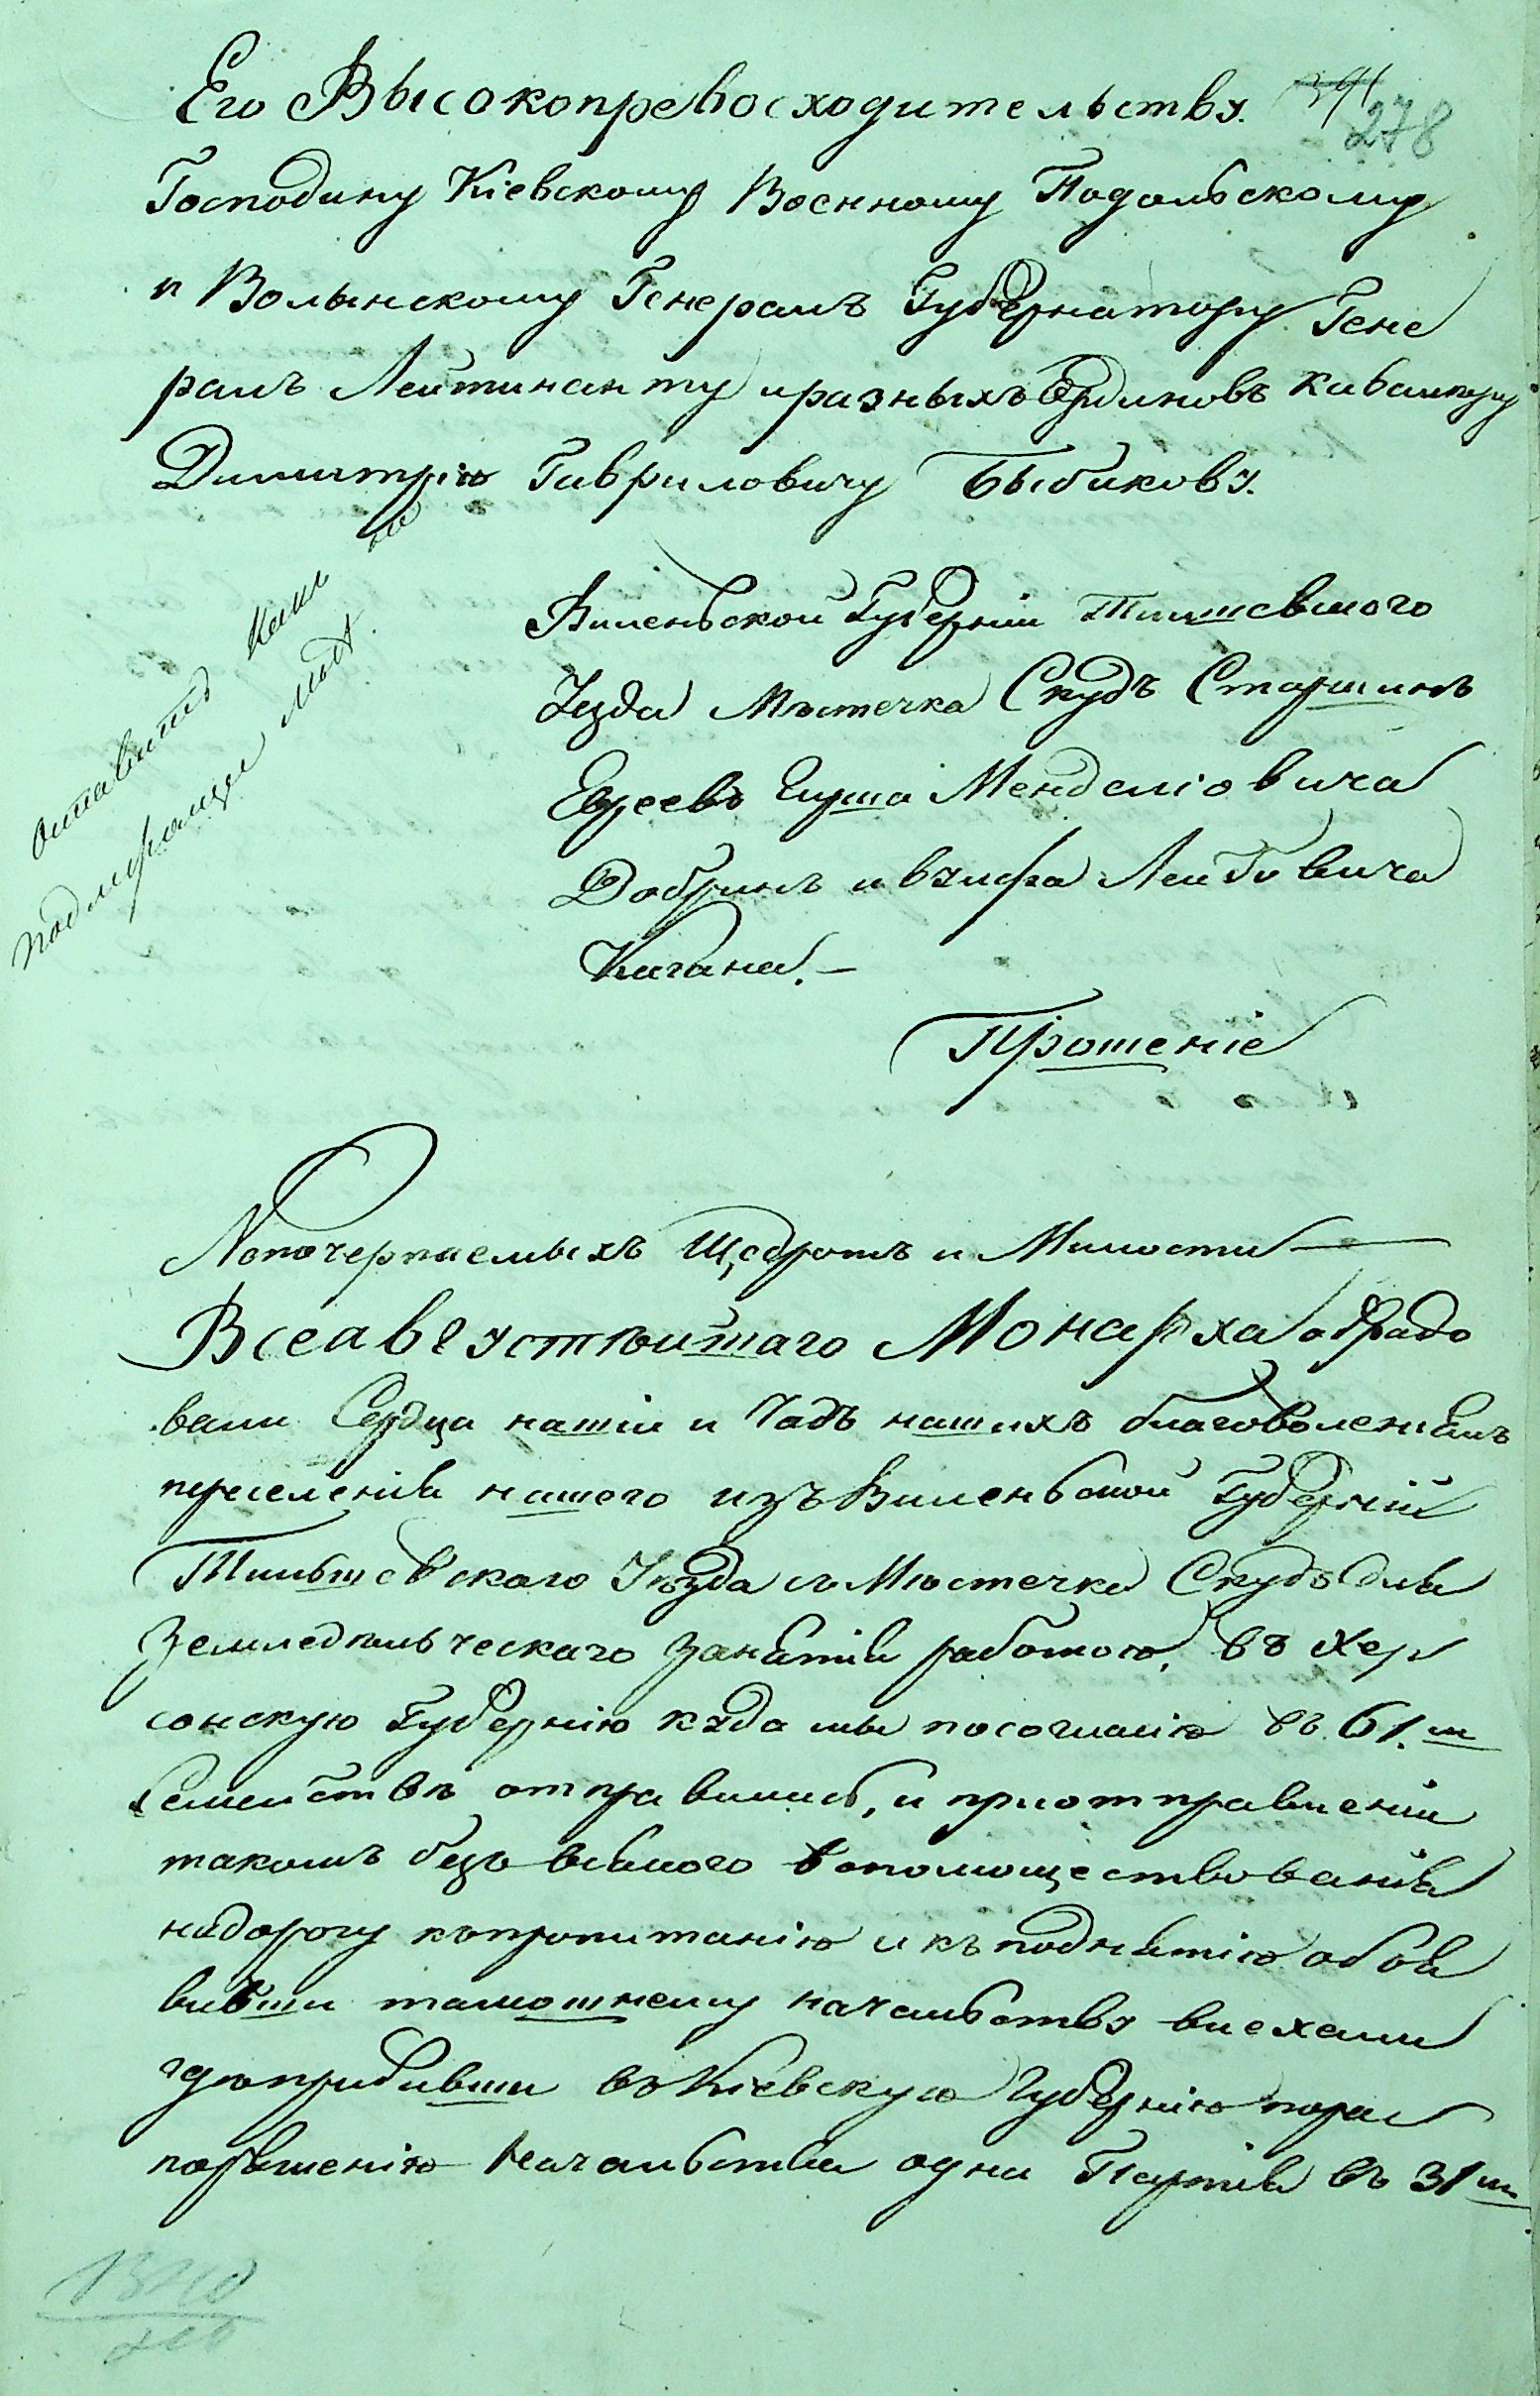 Его Высокопревосходительству.
278
Господину Кіевскому Военному Подольскому
и Волынскому Генералъ Губернатору Гене
ралъ Лейтинанту и разныхъ Ординовъ Кавалеру
Димитрію Гавриловичу Быбикову.
оставить
Виленьской Губерніи Тильшевского
Уезда Мѣстечка Скудъ Старшинъ
Евреевъ Гирша Менделіовича
Добринъ и Лейбовича
Кагана. —
Прошеніе
Щедротъ и Милости
Всеавгустѣйшаго Монарха обрадо
вали Сердца нашіи и Чадъ нашихъ благоволеніямъ
переселенія нашего изъ Виленьской Губерніи
Тильшевского Уѣзда съ Мѣстечка Скудъ для
Земледѣльческаго Занятія работою, въ Хер
сонскую Губернію куда мы по согласію въ 61.ш
Семействѣ отправились, и при отправленіи
такомъ безъ всякого вспомоществованія
на дорогу къ пропитанію и къ поднятію обоя
вивши тамошнему начальству виехали
где прибивши въ Кіевскую Губернію
по разрѣшенію Начальства одна Партія въ 31 ш